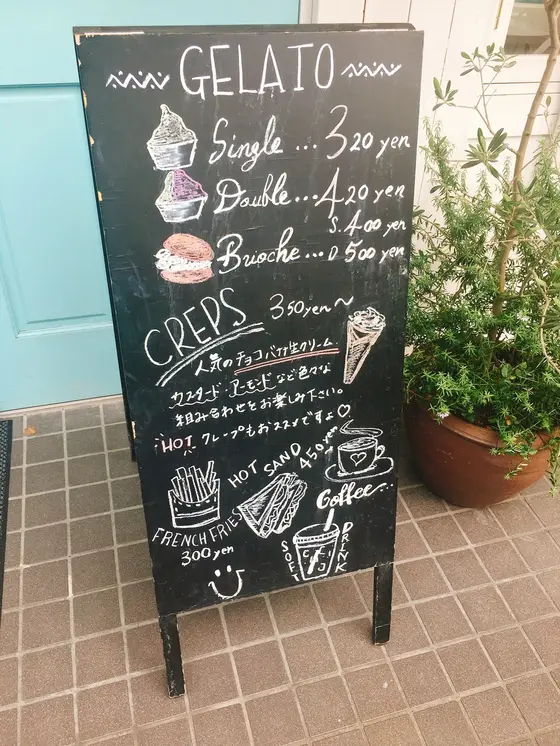 GELATO
Single ... 320 yen
Double ... 420 yen
Brioche ... S.400 yen
D 500 yen
CREPS 350yen~
人気のチョコバナナ生クリーム
カスタード アーモンドなど色々な
組み合わせをお楽しみ下さい。
HOT クレープもおススメですよ♡
HOT SAND 450yen
Coffee..
FRENCH FRIES
300yen
SOFT DRINK